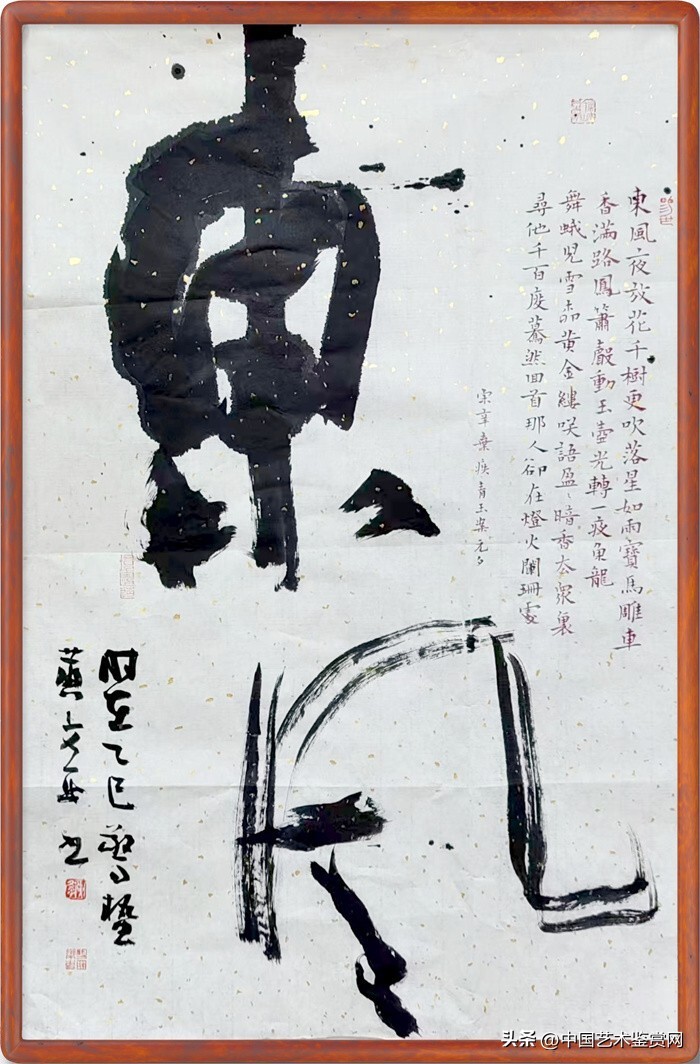 東風
東風夜放花千樹更吹落星如雨寶馬雕車
香滿路鳳簫聲動玉壺光轉一夜魚龍
舞蛾兒雪柳黃金縷咲語盈〻暗香去眾裏
尋他千百度驀然回首那人卻在燈火闌珊處
宋辛棄疾青玉案元夕
時在乙巳驚蟄
文
书
头条 @中国艺术鉴赏网